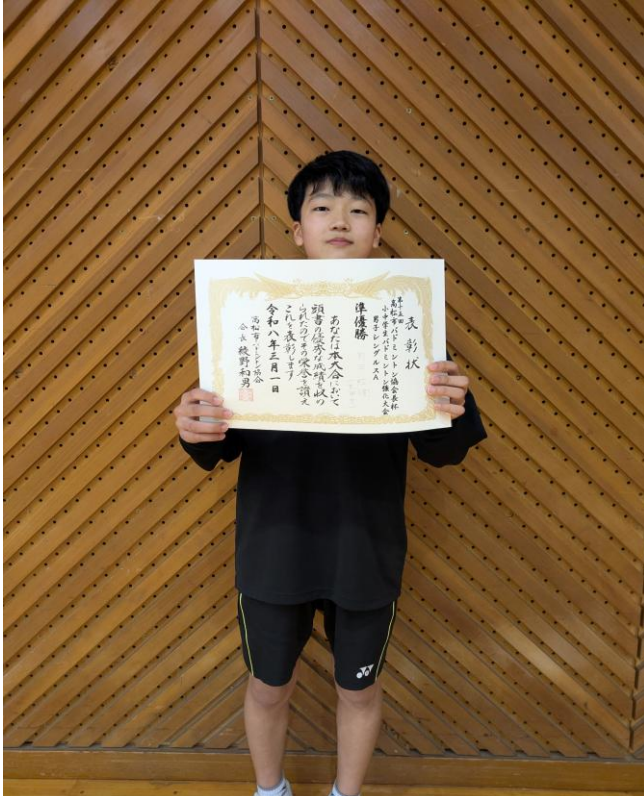 表彰状
第十五回
高松市バドミントン協会長杯
小中学生バドミントン強化大会
男子シングルスA
準優勝
あなたは本大会において
頭書の優秀な成績を収め
られたのでその栄誉を讃え
これを表彰します
令和八年三月一日
高松市バドミントン協会
会長 綾野和男